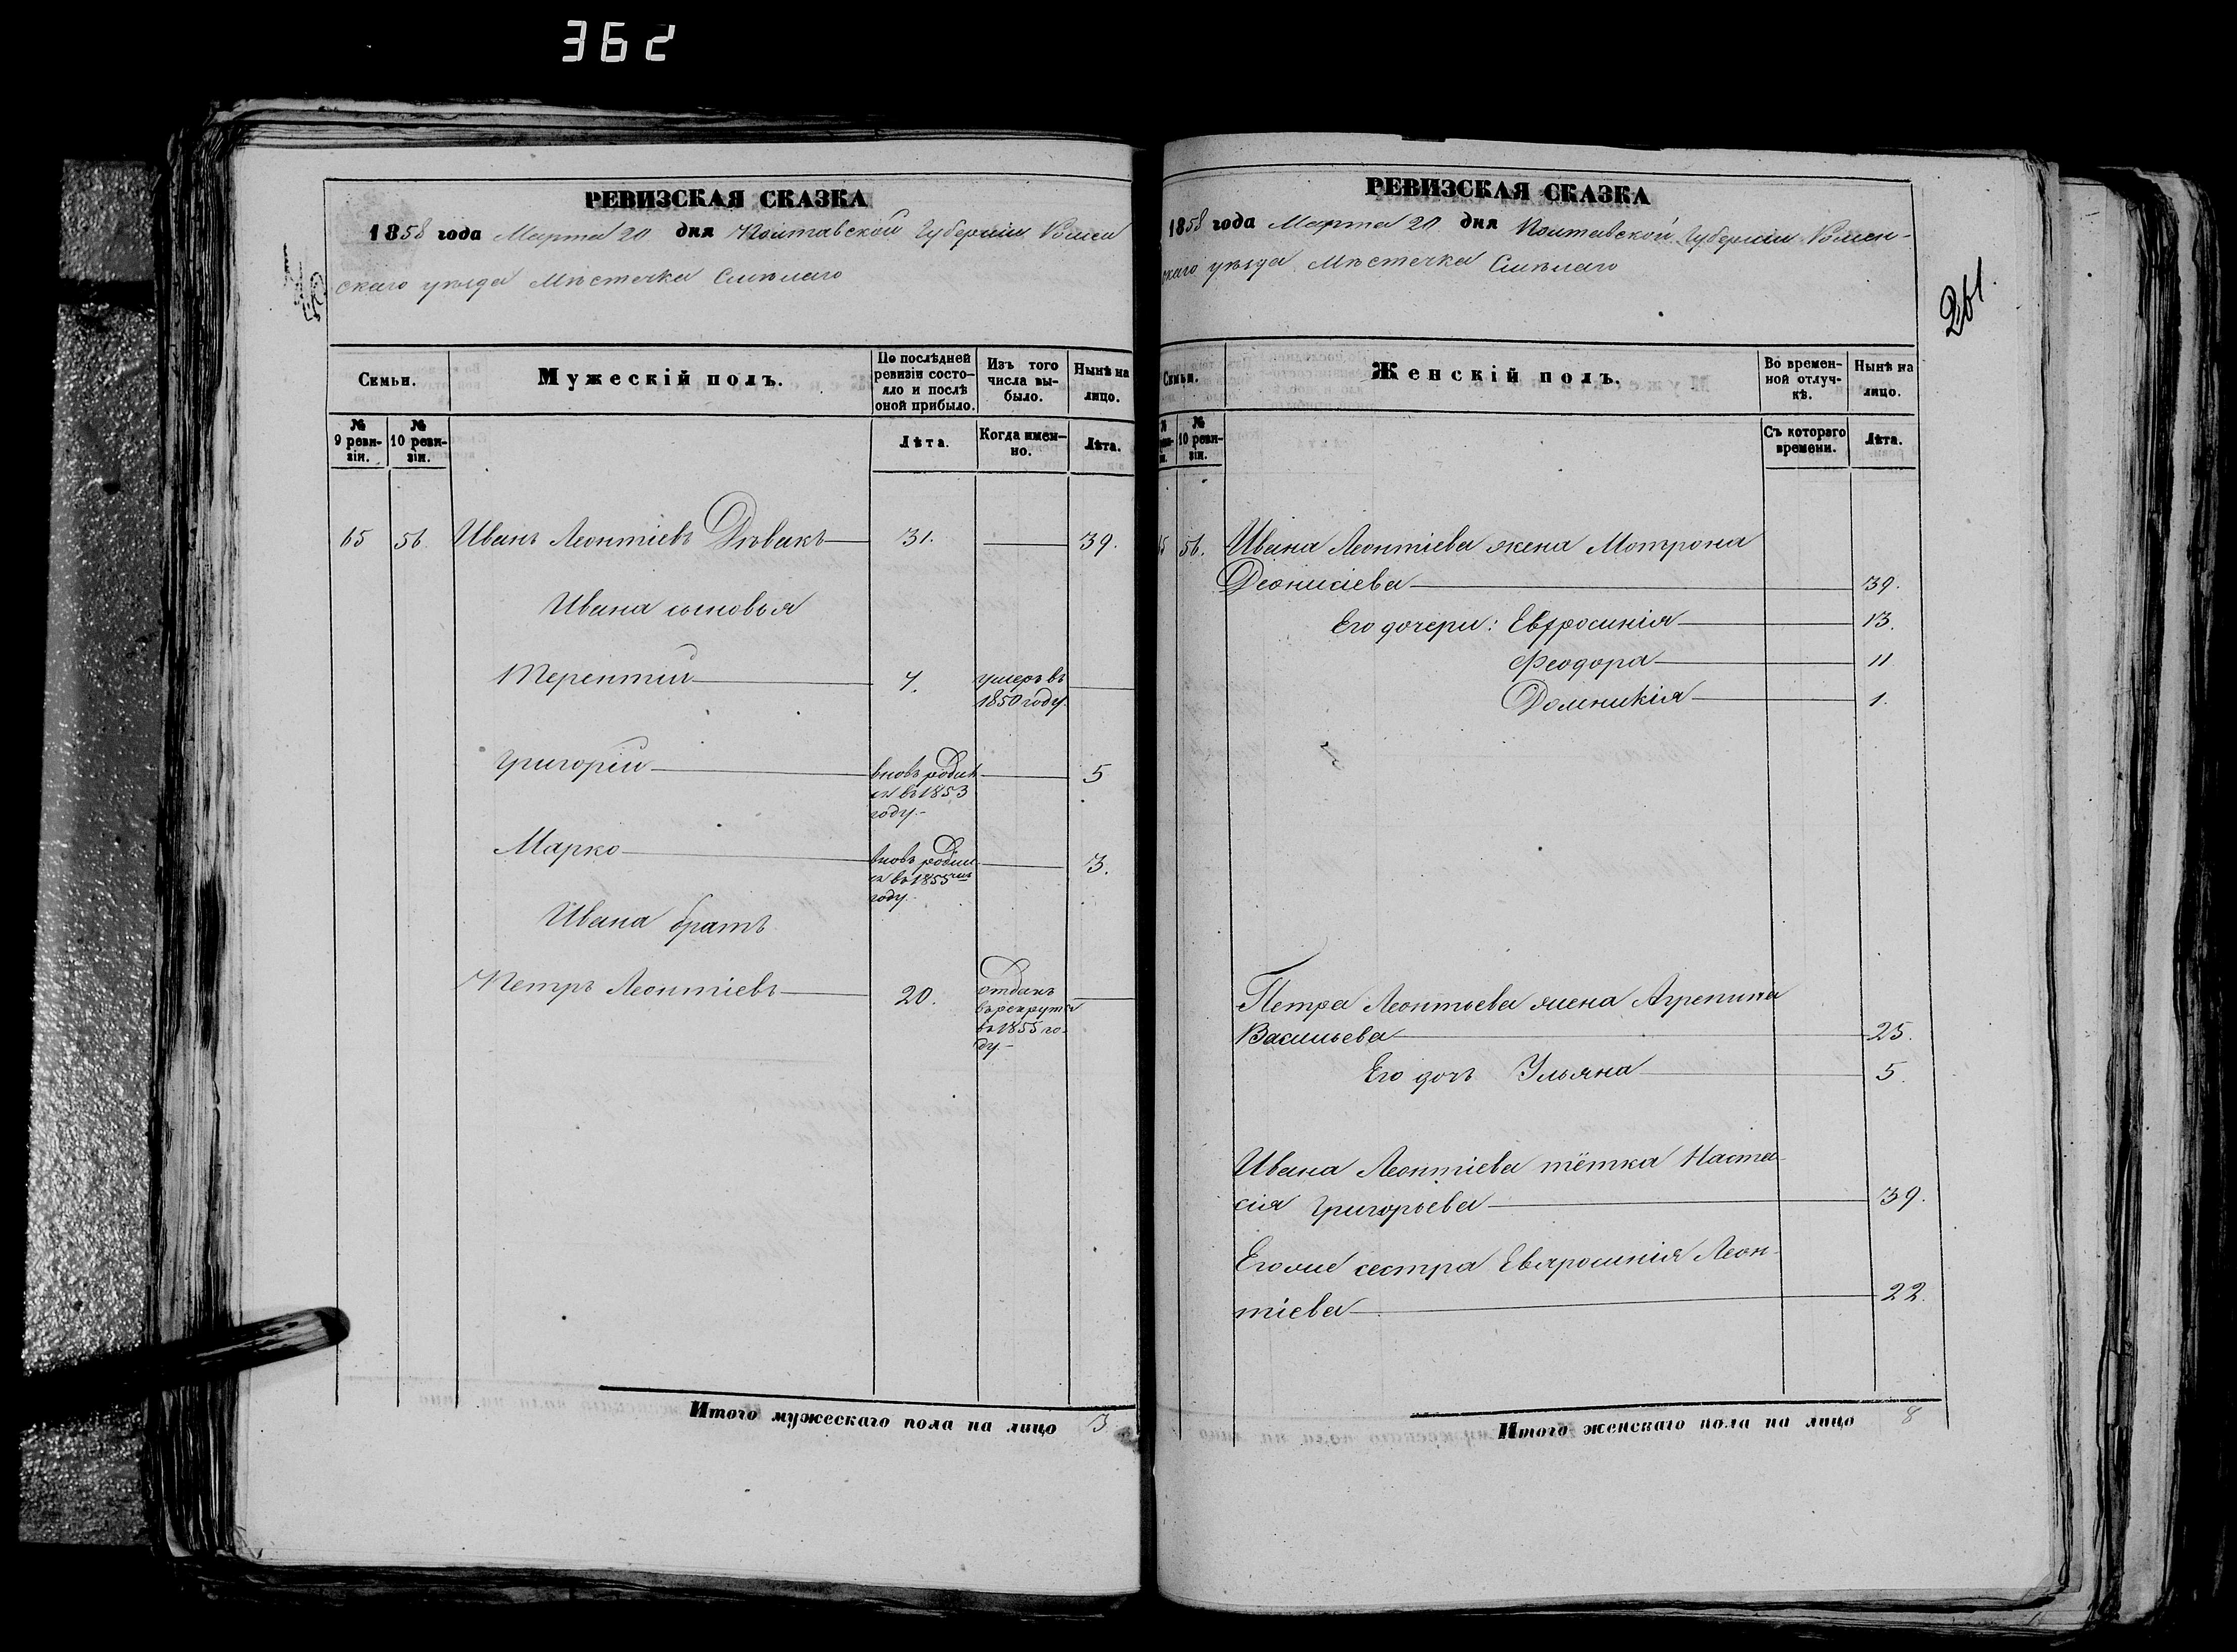 362
РЕВИЗСКАЯ СКАЗКА
1858 года Марта 20 дня Полтавской Губерніи Ромен
скаго уѣзда Мѣстечка Смѣлаго
Семьи.
Мужескій полъ.
По послѣдней ревизіи состояло и послѣ оной прибыло.
Изъ того числа выбыло.
Нынѣ на лицо.
№ 9 ревизіи.
№ 10 ревизіи.
Лѣта.
Когда именно.
Лѣта.
65 56. Иванъ Леонтіевъ Дѣвакъ 31. 39.
Ивана сыновья
Терентій умеръ въ
1850 году.
Григорій вновь родил 5
ся въ 1853
году.-
Марко вновь родил 3.
ся въ 1855
году.
Ивана братъ
Петръ Леонтіевъ 20. отданъ
въ рекруты
въ 1855 го-
ду.-
Итого мужескаго пола на лицо 3
РЕВИЗСКАЯ СКАЗКА
1858 года Марта 20 дня Полтавской Губерніи Ромен-
скаго уѣзда Мѣстечка Смѣлаго
261.
Семьи.
Женскій полъ.
Во временной отлучкѣ.
Нынѣ на лицо.
№ 10 ревизіи.
Съ котораго времени.
Лѣта.
56. Ивана Леонтіева жена Мотрона
Деонисіева 39.
Его дочери: Евфросинія 13.
Феодора 11
Домникія 1.
Петра Леонтьева жена Агрепина
Васильева 25.
Его дочь Ульяна 5.
Ивана Леонтіева тётка Наста
сія Григорьева 39.
Егоже сестра Евфросинія Леон-
тіева 22.
Итого женскаго пола на лицо 8